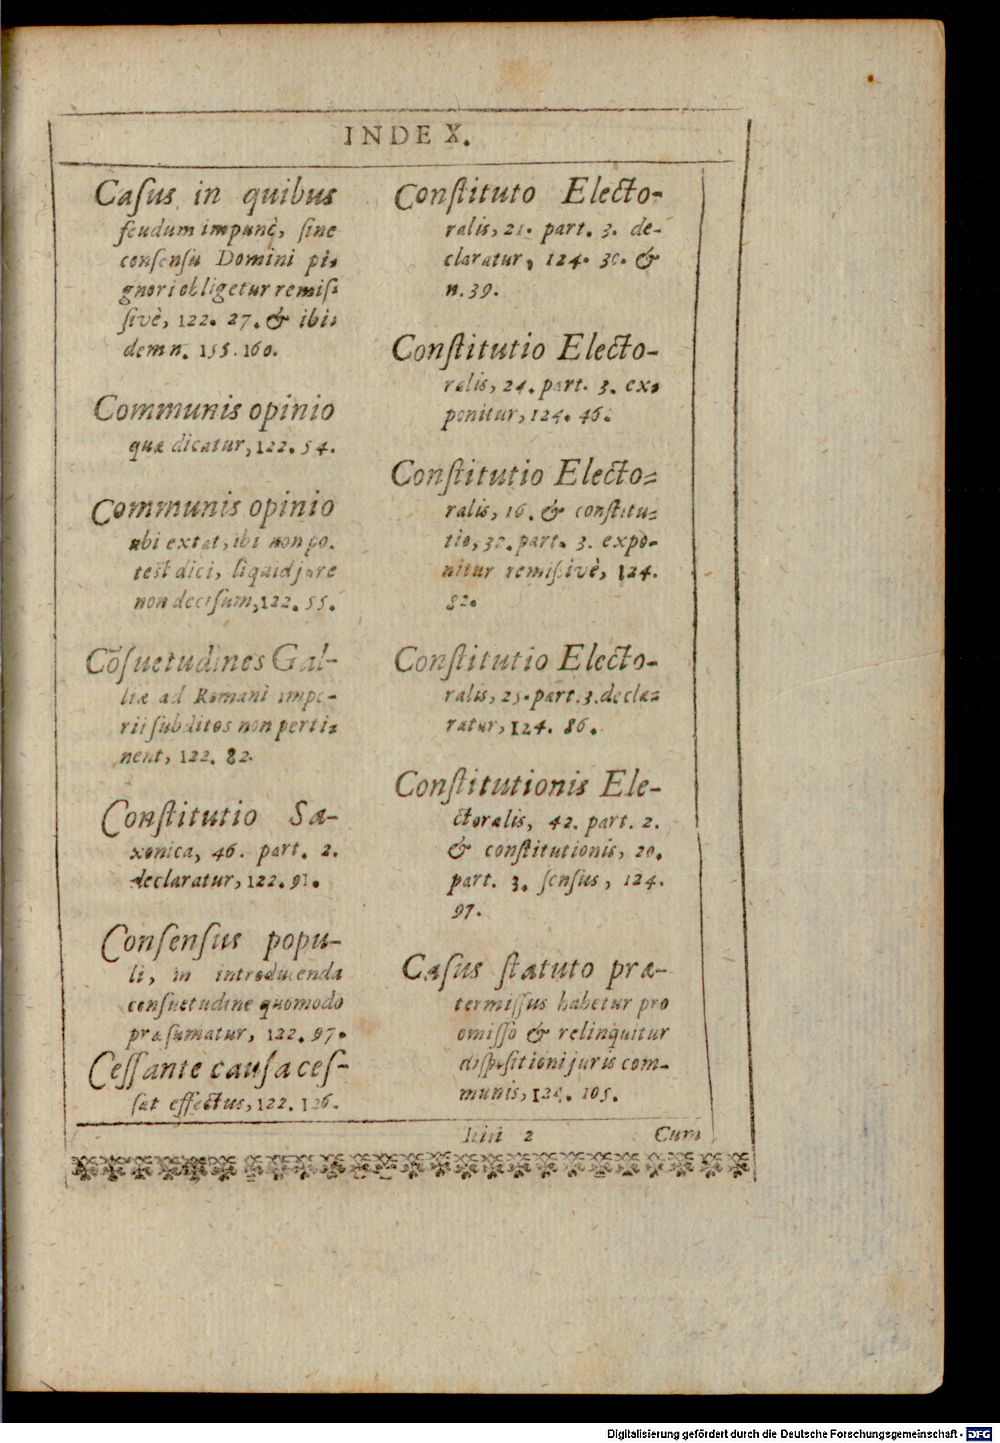 INDEX.
Caſus in quibus
feudum impunè, ſine
conſenſu Domini pi-
gnori obligetur remiſ-
ſivè, 122. 27. & ibi-
dem n. 155. 160.
Communis opinio
quæ dicatur, 122. 54.
Communis opinio
ubi extat, ibi non po-
test dici, liquid jure
non deciſum, 122. 55.
Cõſuetudines Gal-
liæ ad Romani impe-
rii ſubditos non perti-
nent, 122. 82.
Conſtitutio Sa-
xonica, 46. part. 2.
declaratur, 122. 91.
Conſenſus popu-
li, in introducenda
conſuetudine quomodo
præſumatur, 122. 97.
Ceſſante cauſa ceſ-
ſat effectus, 122. 126.
Conſtituto Electo-
ralis, 21. part. 3. de-
claratur, 124. 30. &
n. 39.
Conſtitutio Electo-
ralis, 24. part. 3. ex-
ponitur, 124. 46.
Conſtitutio Electo-
ralis, 16. & conſtitu-
tio, 32. part. 3. expo-
nitur remiſſivè, 124.
82.
Conſtitutio Electo-
ralis, 25. part. 3. decla-
ratur, 124. 86.
Conſtitutionis Ele-
ctoralis, 42. part. 2.
& conſtitutionis, 20.
part. 3. ſenſus, 124.
97.
Caſus ſtatuto præ-
termiſſus habetur pro
omiſſo & relinquitur
diſpoſitioni juris com-
munis, 124. 105.
Iiii 2
Cum
Digitalisierung gefördert durch die Deutsche Forschungsgemeinschaft - DFG